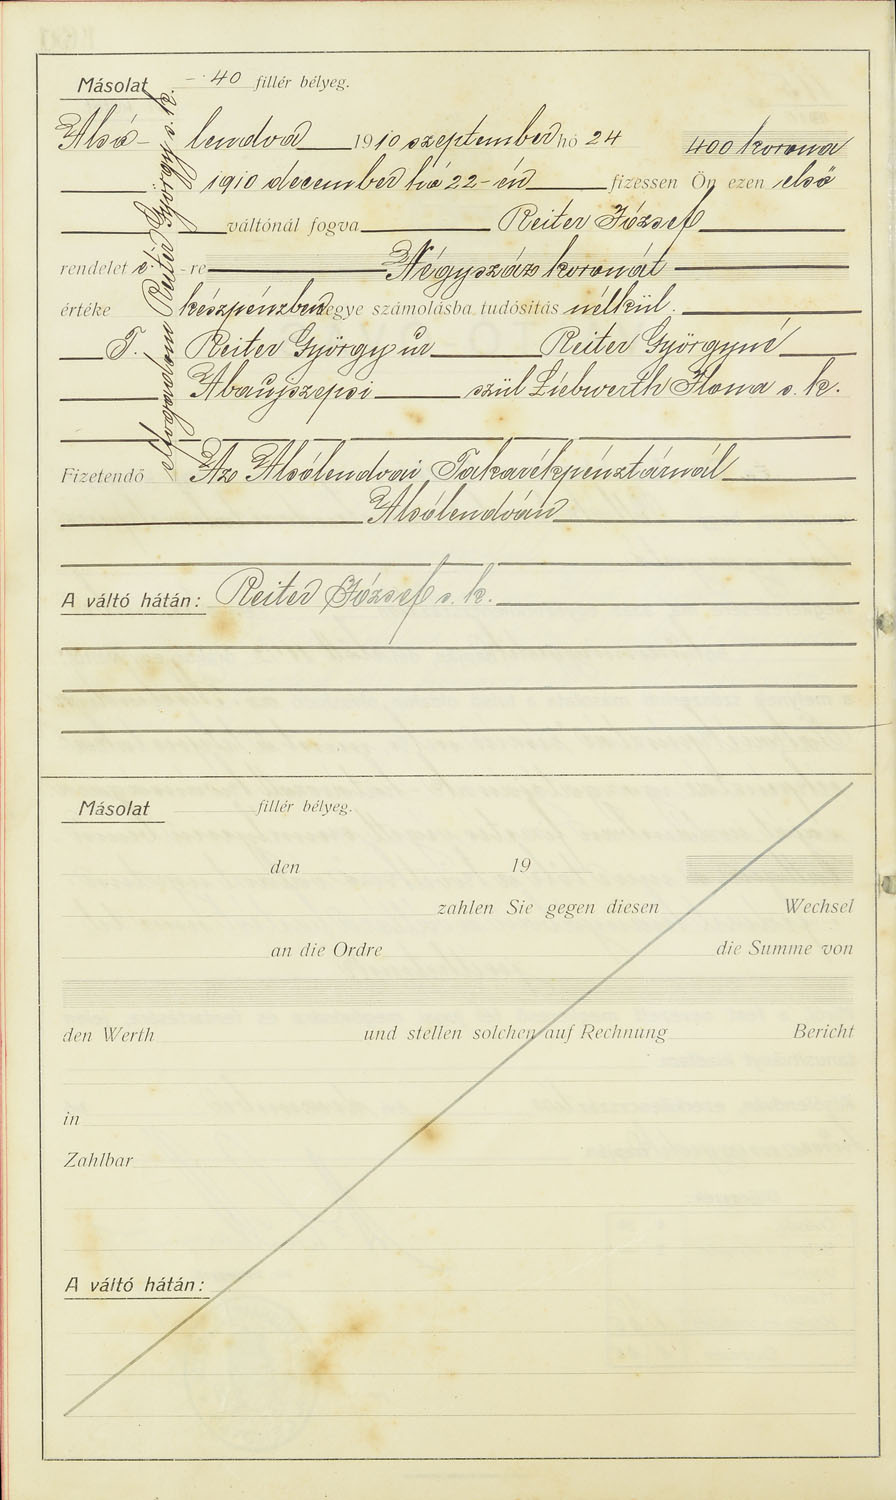 Másolat -·40 fillér bélyeg.
Alsó- lendva 1910 szeptember hó 24 400 korona
1910 december hó 22-én fizessen Ön ezen első
váltónál fogva Reiter József
rendelet é -re Négyszáz koronát
értéke készpénzben vegye számolásba tudósítás nélkül.
T. Reiter György úr Reiter Györgyné
Abaujszepsi szül Liebwerth Ilona s. k.
elfogadom Reiter György s. k.
Fizetendő Az Alsólendvai Takarékpénztárnál
Alsólendván
A váltó hátán: Reiter József s. k.
Másolat fillér bélyeg.
den 19
zahlen Sie gegen diesen Wechsel
an die Ordre die Summe von
den Werth und stellen solchen auf Rechnung Bericht
in
Zahlbar
A váltó hátán: